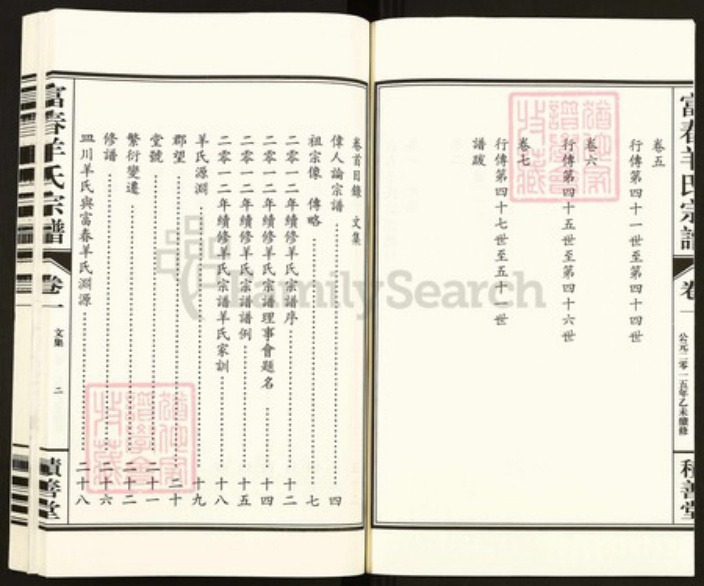 卷五
行傳第四十一世至第四十四世
卷六
行傳第四十五世至第四十六世
卷七
行傳第四十七世至五十一世
譜跋
富春羊氏宗譜
卷一
公元二零一五年乙未續修
積善堂
卷首目錄 文集
偉人論宗譜 四
祖宗像 傳略 七
二零一二年續修羊氏宗譜序 十二
二零一二年續修羊氏宗譜理事會題名 十四
二零一二年續修羊氏宗譜譜例 十五
二零一二年續修羊氏宗譜羊氏家訓 十八
羊氏源淵 十九
郡望 二十
堂號 二十一
繁衍變遷 二十二
修譜 二十六
四川羊氏與富春羊氏淵源 二十八
富春羊氏宗譜
卷一
文集
二
積善堂
FamilySearch